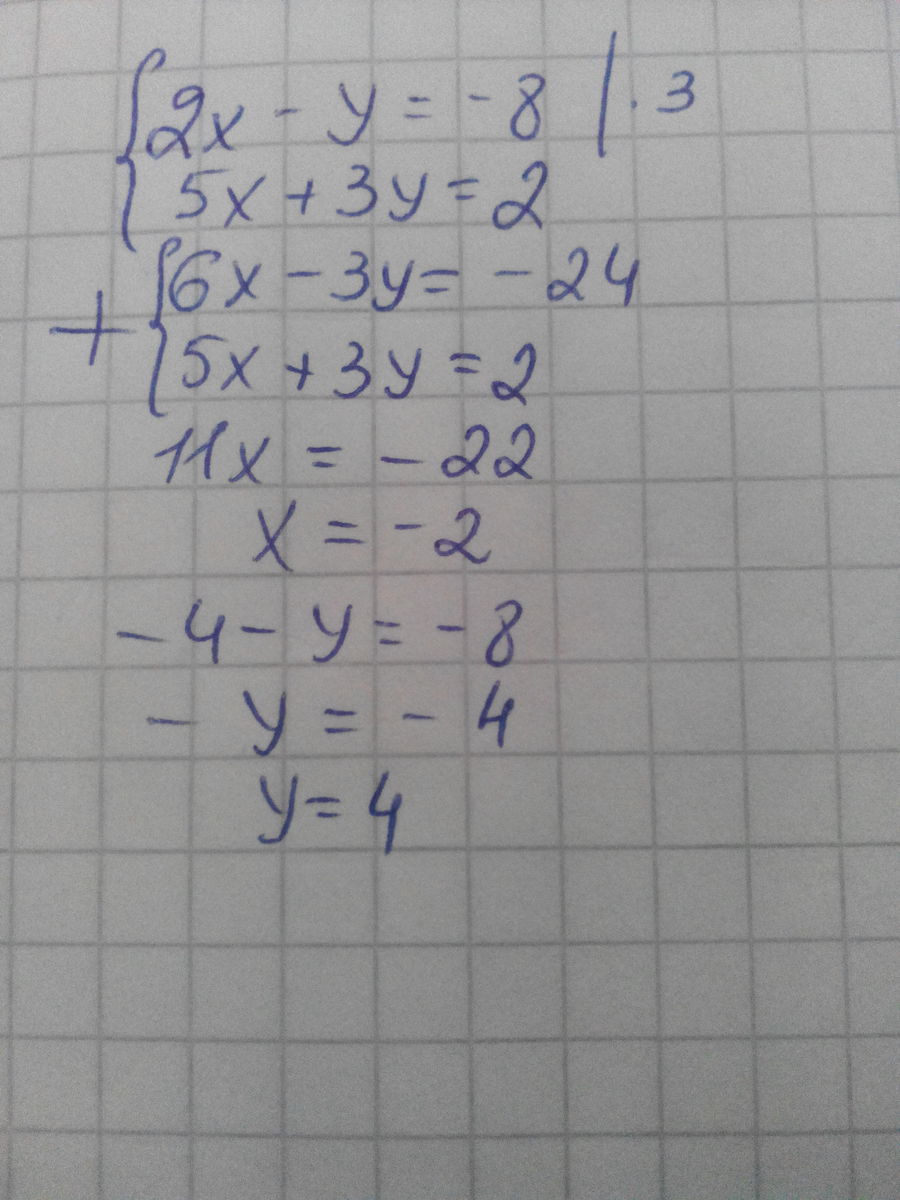 2x - y = -8 | · 3
5x + 3y = 2
+ 6x - 3y = - 24
5x + 3y = 2
11x = - 22
x = -2
- 4 - y = - 8
- y = - 4
y = 4